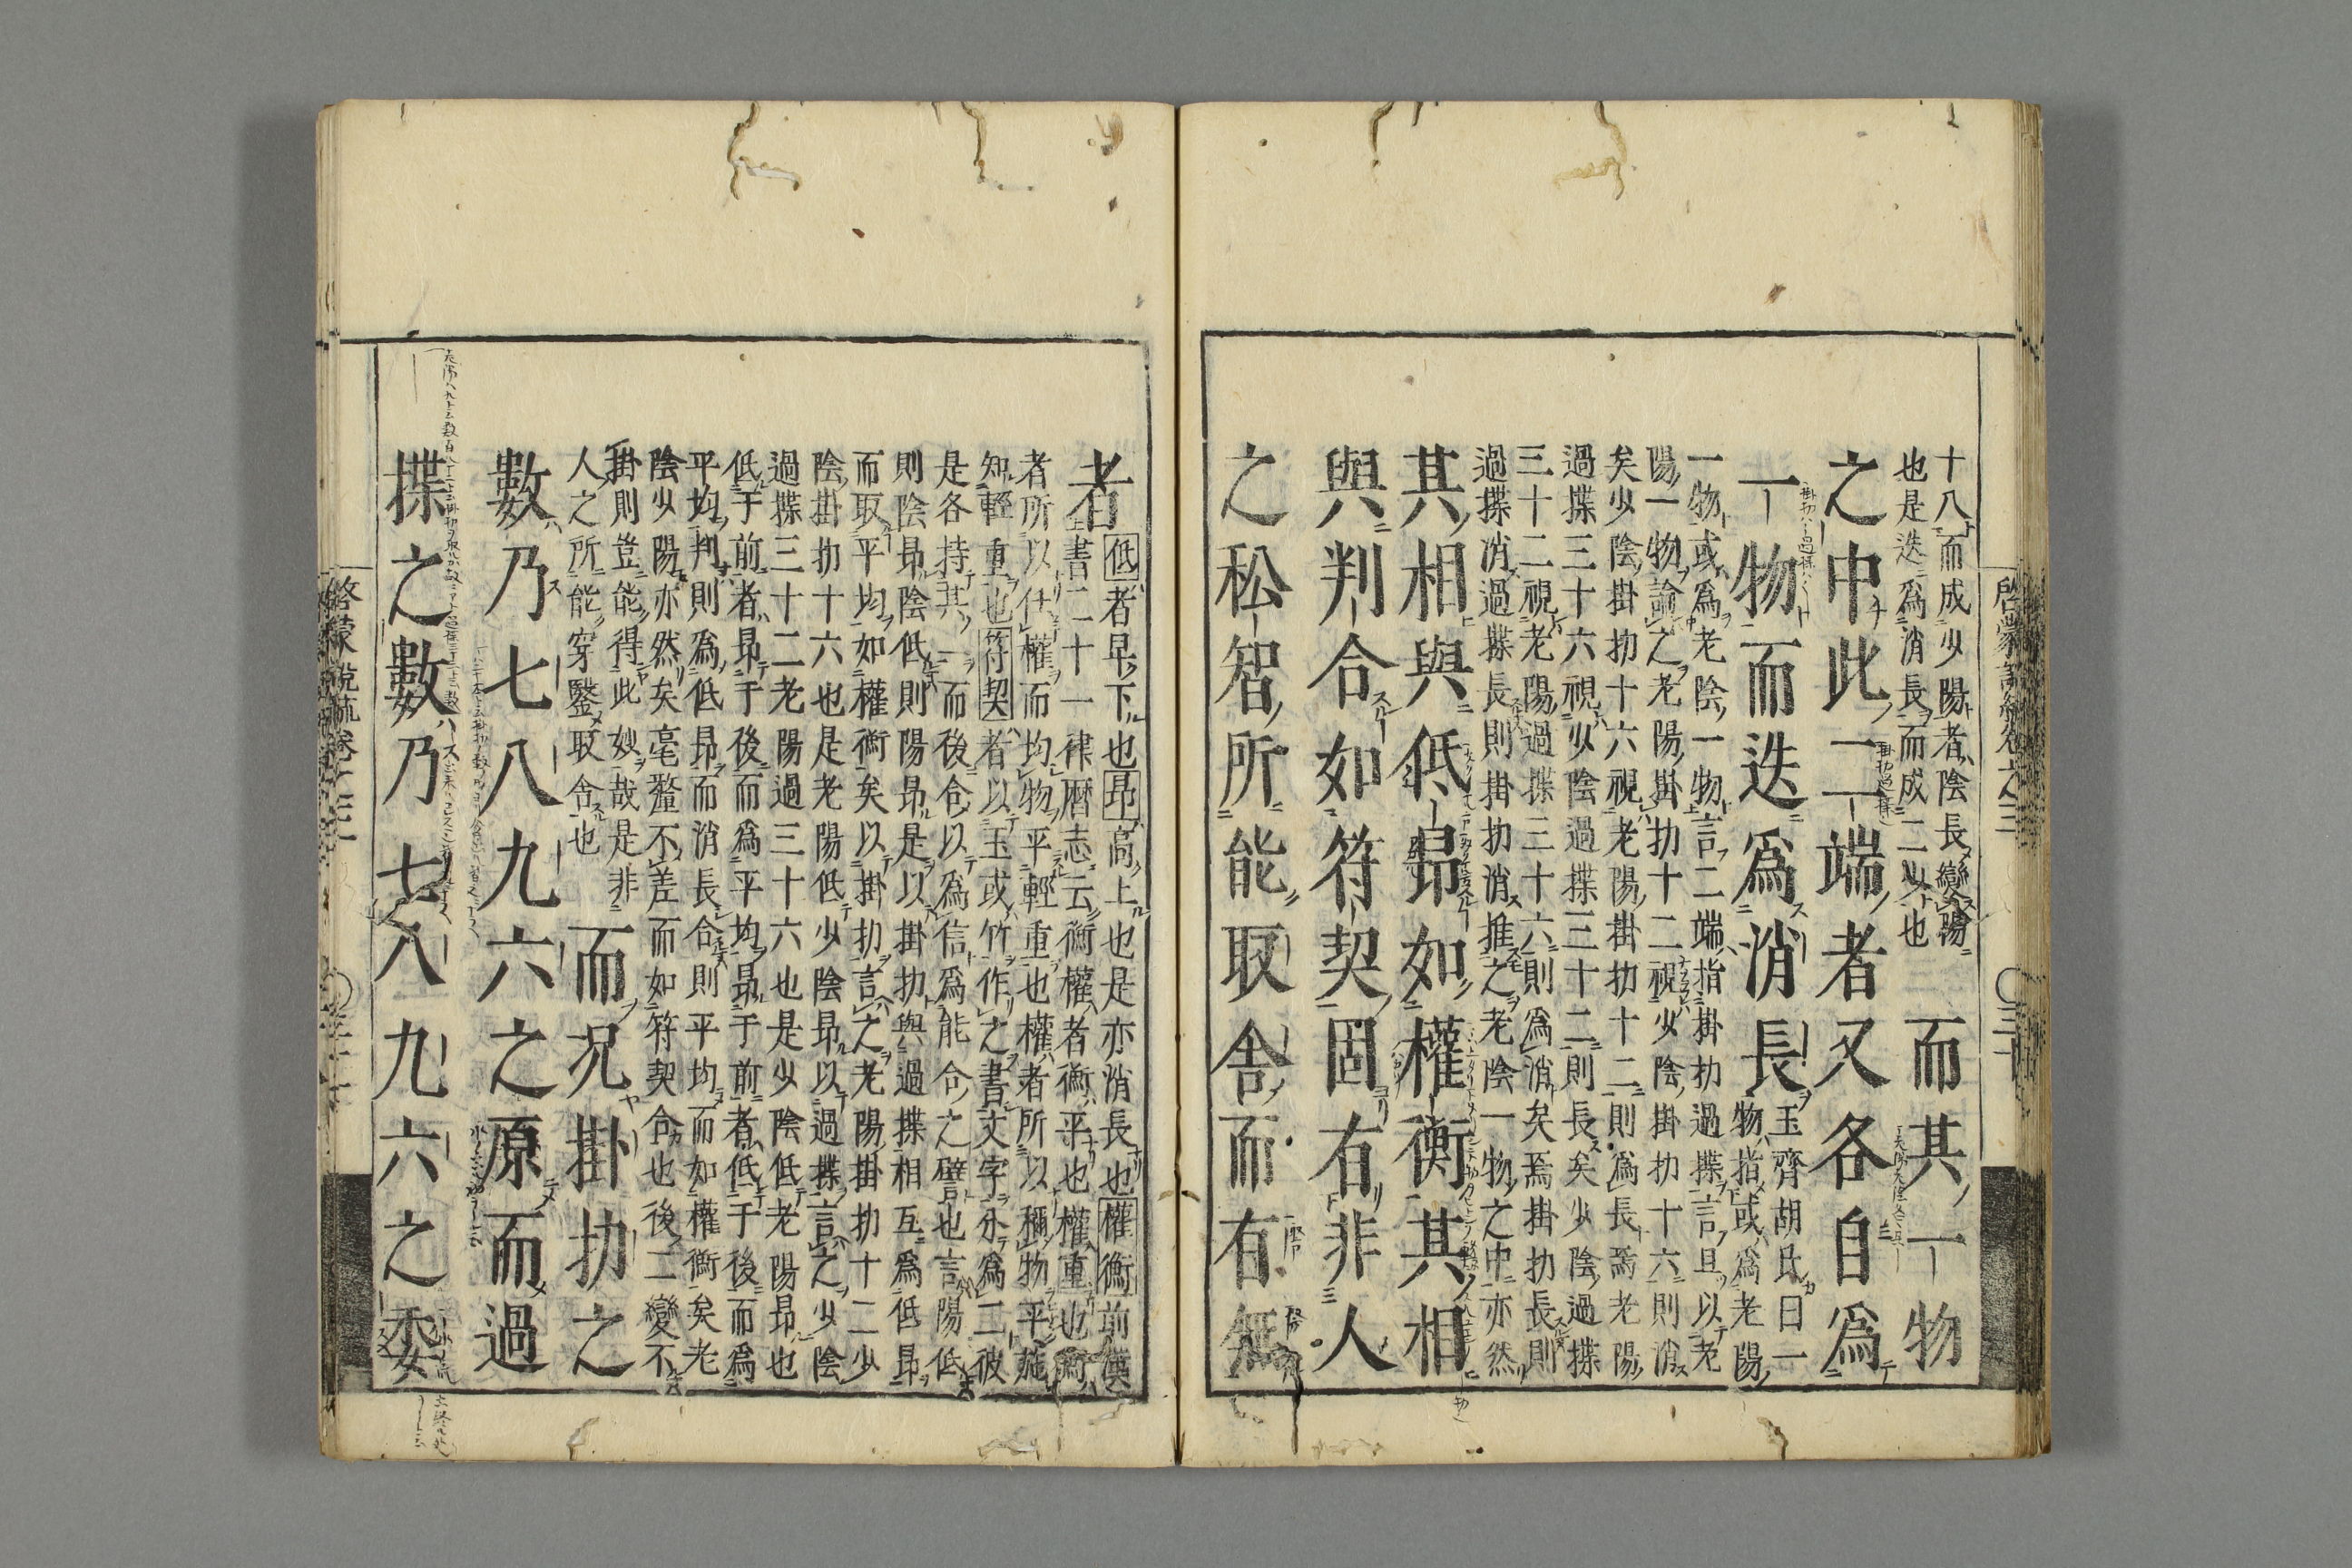 十八而成少陽者陰長變陽
也是迭爲消長而成二少也
而其一物
之中此二端者又各自爲
一物而迭爲消長
玉齊胡氏曰一
物指或爲老陽
一物或爲老陰一物言二端指掛扐過揲言且以老
陽一物論之老陽掛扐十二視少陰掛扐十六則消
矣少陰掛扐十六視老陽掛扐十二則爲長焉老陽
過揲三十六視少陰過揲三十二則長矣少陰過揲
三十二視老陽過揲三十六則爲消矣焉掛扐長則
過揲消過揲長則掛扐消推之老陰一物之中亦然
其相與低昻如權衡其相
與判合如符契固有非人
之私智所能取舍而有無
者
低者早下也昻高上也是亦消長也權衡前漢
書二十一律暦志云衡權者衡平也權重也衡
者所以任權而均物平輕重也權者所以稱物平施
知輕重也符契者以玉或竹作之書文字分爲二彼
是各持其一而後合以爲信爲能合之譬也言陽低
則陰昻陰低則陽昻是以掛扐與過揲相互爲低昻
而取平均如權衡矣以掛扐言之老陽掛扐十二少
陰掛扐十六也是老陽低少陰昻以過揲言之少陰
過揲三十二老陽過三十六也是少陰低老陽昻也
低于前者昻于後而爲平均昻于前者低于後而爲
平均判則爲低昻而消長合則平均而如權衡矣老
陰少陽亦然矣毫釐不差而如符契合也後二變不
掛則豈能得此妙哉是非
人之所能穿鑿取舍也
而况掛扐之
數乃七八九六之原而過
揲之數乃七八九六之委
啓蒙說統卷之三